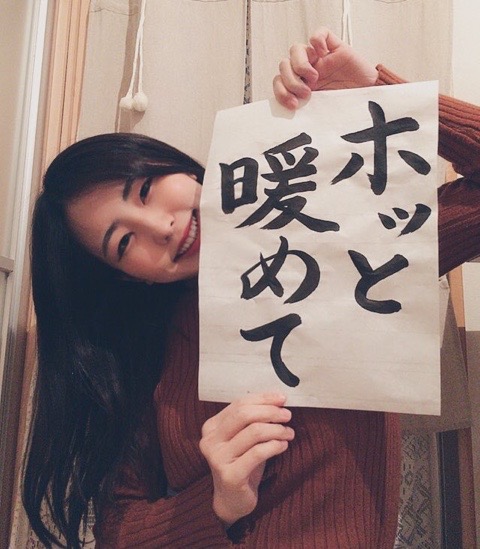 ホッと
暖めて